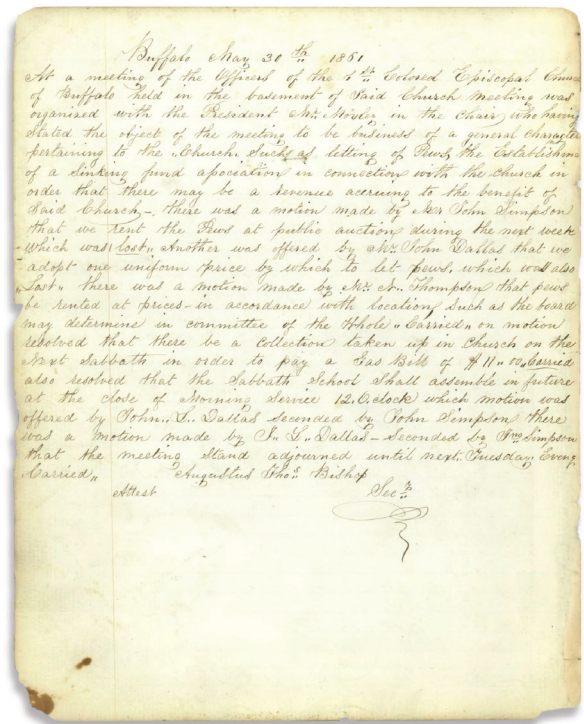 Buffalo May 30th 1861
At a meeting of the Officers of the 1st Colored Episcopal Church
of Buffalo held in the basement of Said Church meeting was
organized with the President Mr. in the Chair, who having
Stated the object of the meeting to be business of a general character
pertaining to the Church. Such as letting of Pews, the Establishme
of a Sinking fund association in connection with the church in
order that there may be a revenue accruing to the benefit of
Said Church - there was a motion made by Mr John Simpson
that we rent the Pews at public auction during the next week
which was lost " Another was offered by Mr. John Dallas that we
adopt one uniform price by which to let pews, which was also
" Lost " there was a motion made by Mr. N. Thompson that pews
be rented at prices - in accordance with location, Such as the board
may determine in committee of the Whole " Carried " on motion
resolved that there be a collection taken up in Church on the
Next Sabbath in order to pay a Gas Bill of $11 " 00 " Carried
also resolved that the Sabbath School Shall assemble in future
at the close of Morning Service 12. Oclock which motion was
offered by John. L. Dallas seconded by John Simpson, there
was a motion made by J. L. Dallas - Seconded by Jno Simpson
that the meeting Stand adjourned until next. Tuesday. Eveng
Carried "
Augustus Thos. Bishop
Attest Secy